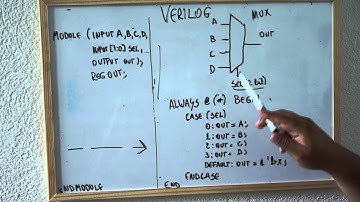 VERILOG
MODULE (INPUT A,B,C,D,
INPUT [1:0] SEL,
OUTPUT OUT);
REG OUT;
ENDMODULE
MUX
A
B
C
D
OUT
SEL
ALWAYS @ (*) BEGIN
CASE (SEL)
0: OUT = A;
1: OUT = B;
2: OUT = C;
3: OUT = D;
DEFAULT: OUT = 1'bX;
ENDCASE
END